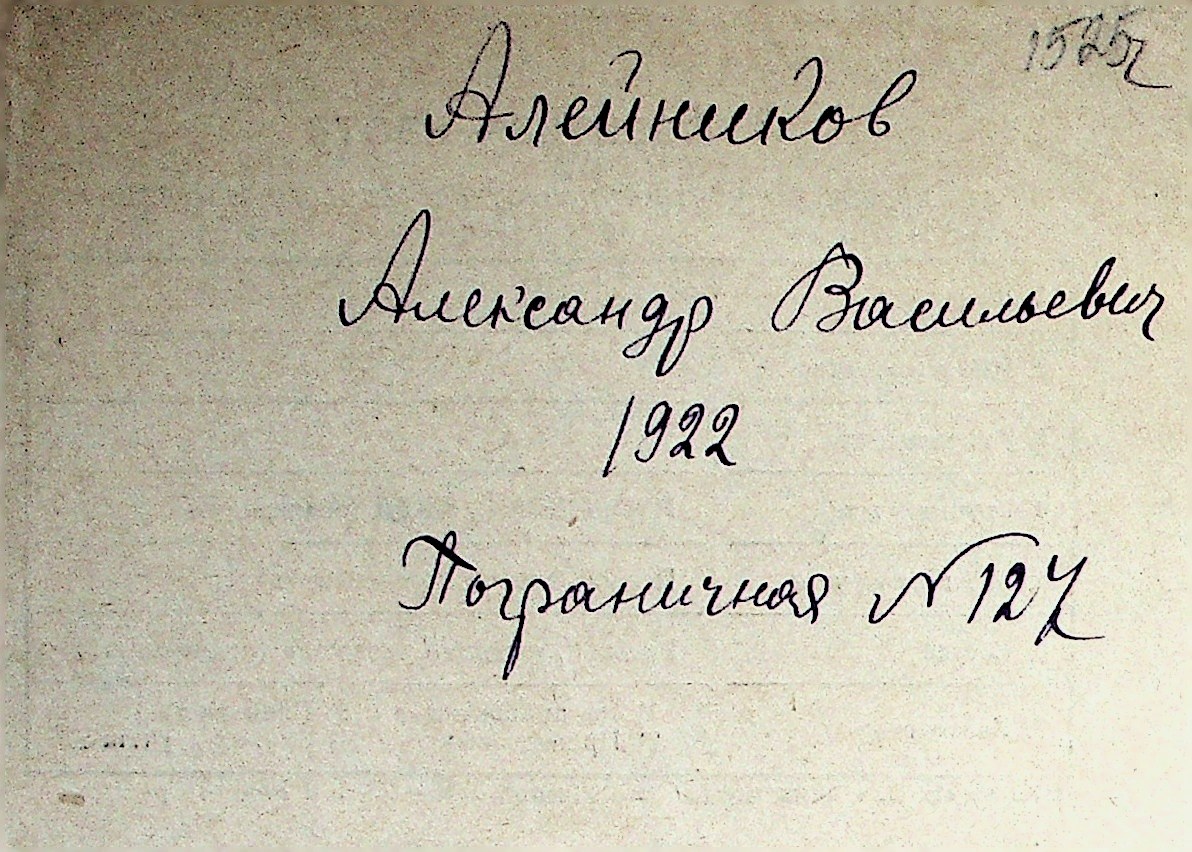 Алейников
Александр Васильевич
1922
Пограничная № 127